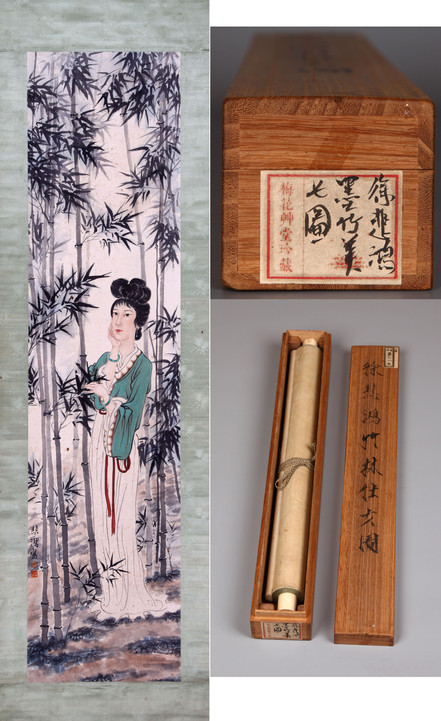 徐悲鴻
墨竹美
圖
梅花艸堂珍藏
徐悲鴻竹林仕女圖
悲鴻